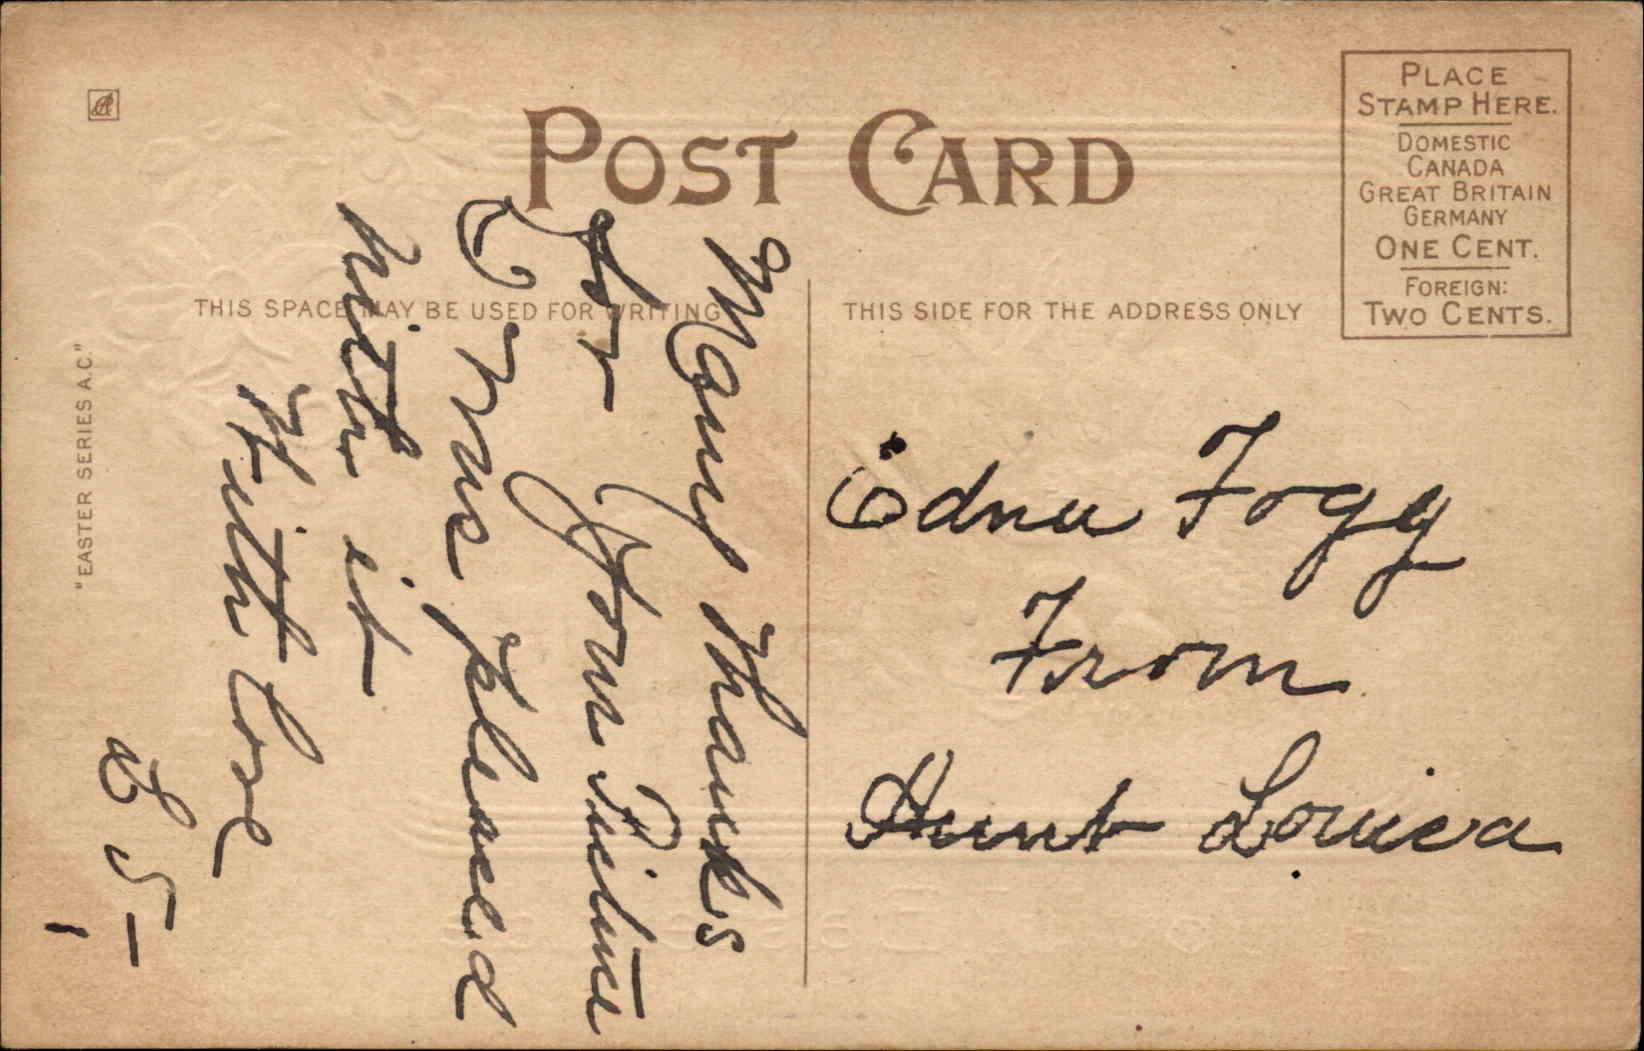 POST CARD
PLACE
STAMP HERE.
DOMESTIC
CANADA
GREAT BRITAIN
GERMANY
ONE CENT.
FOREIGN:
TWO CENTS.
THIS SPACE MAY BE USED FOR WRITING
THIS SIDE FOR THE ADDRESS ONLY
"EASTER SERIES A.C."
Many thanks
for Your Picture
pleased
with it
With Love
Edna Fogg
From
Aunt Louisa